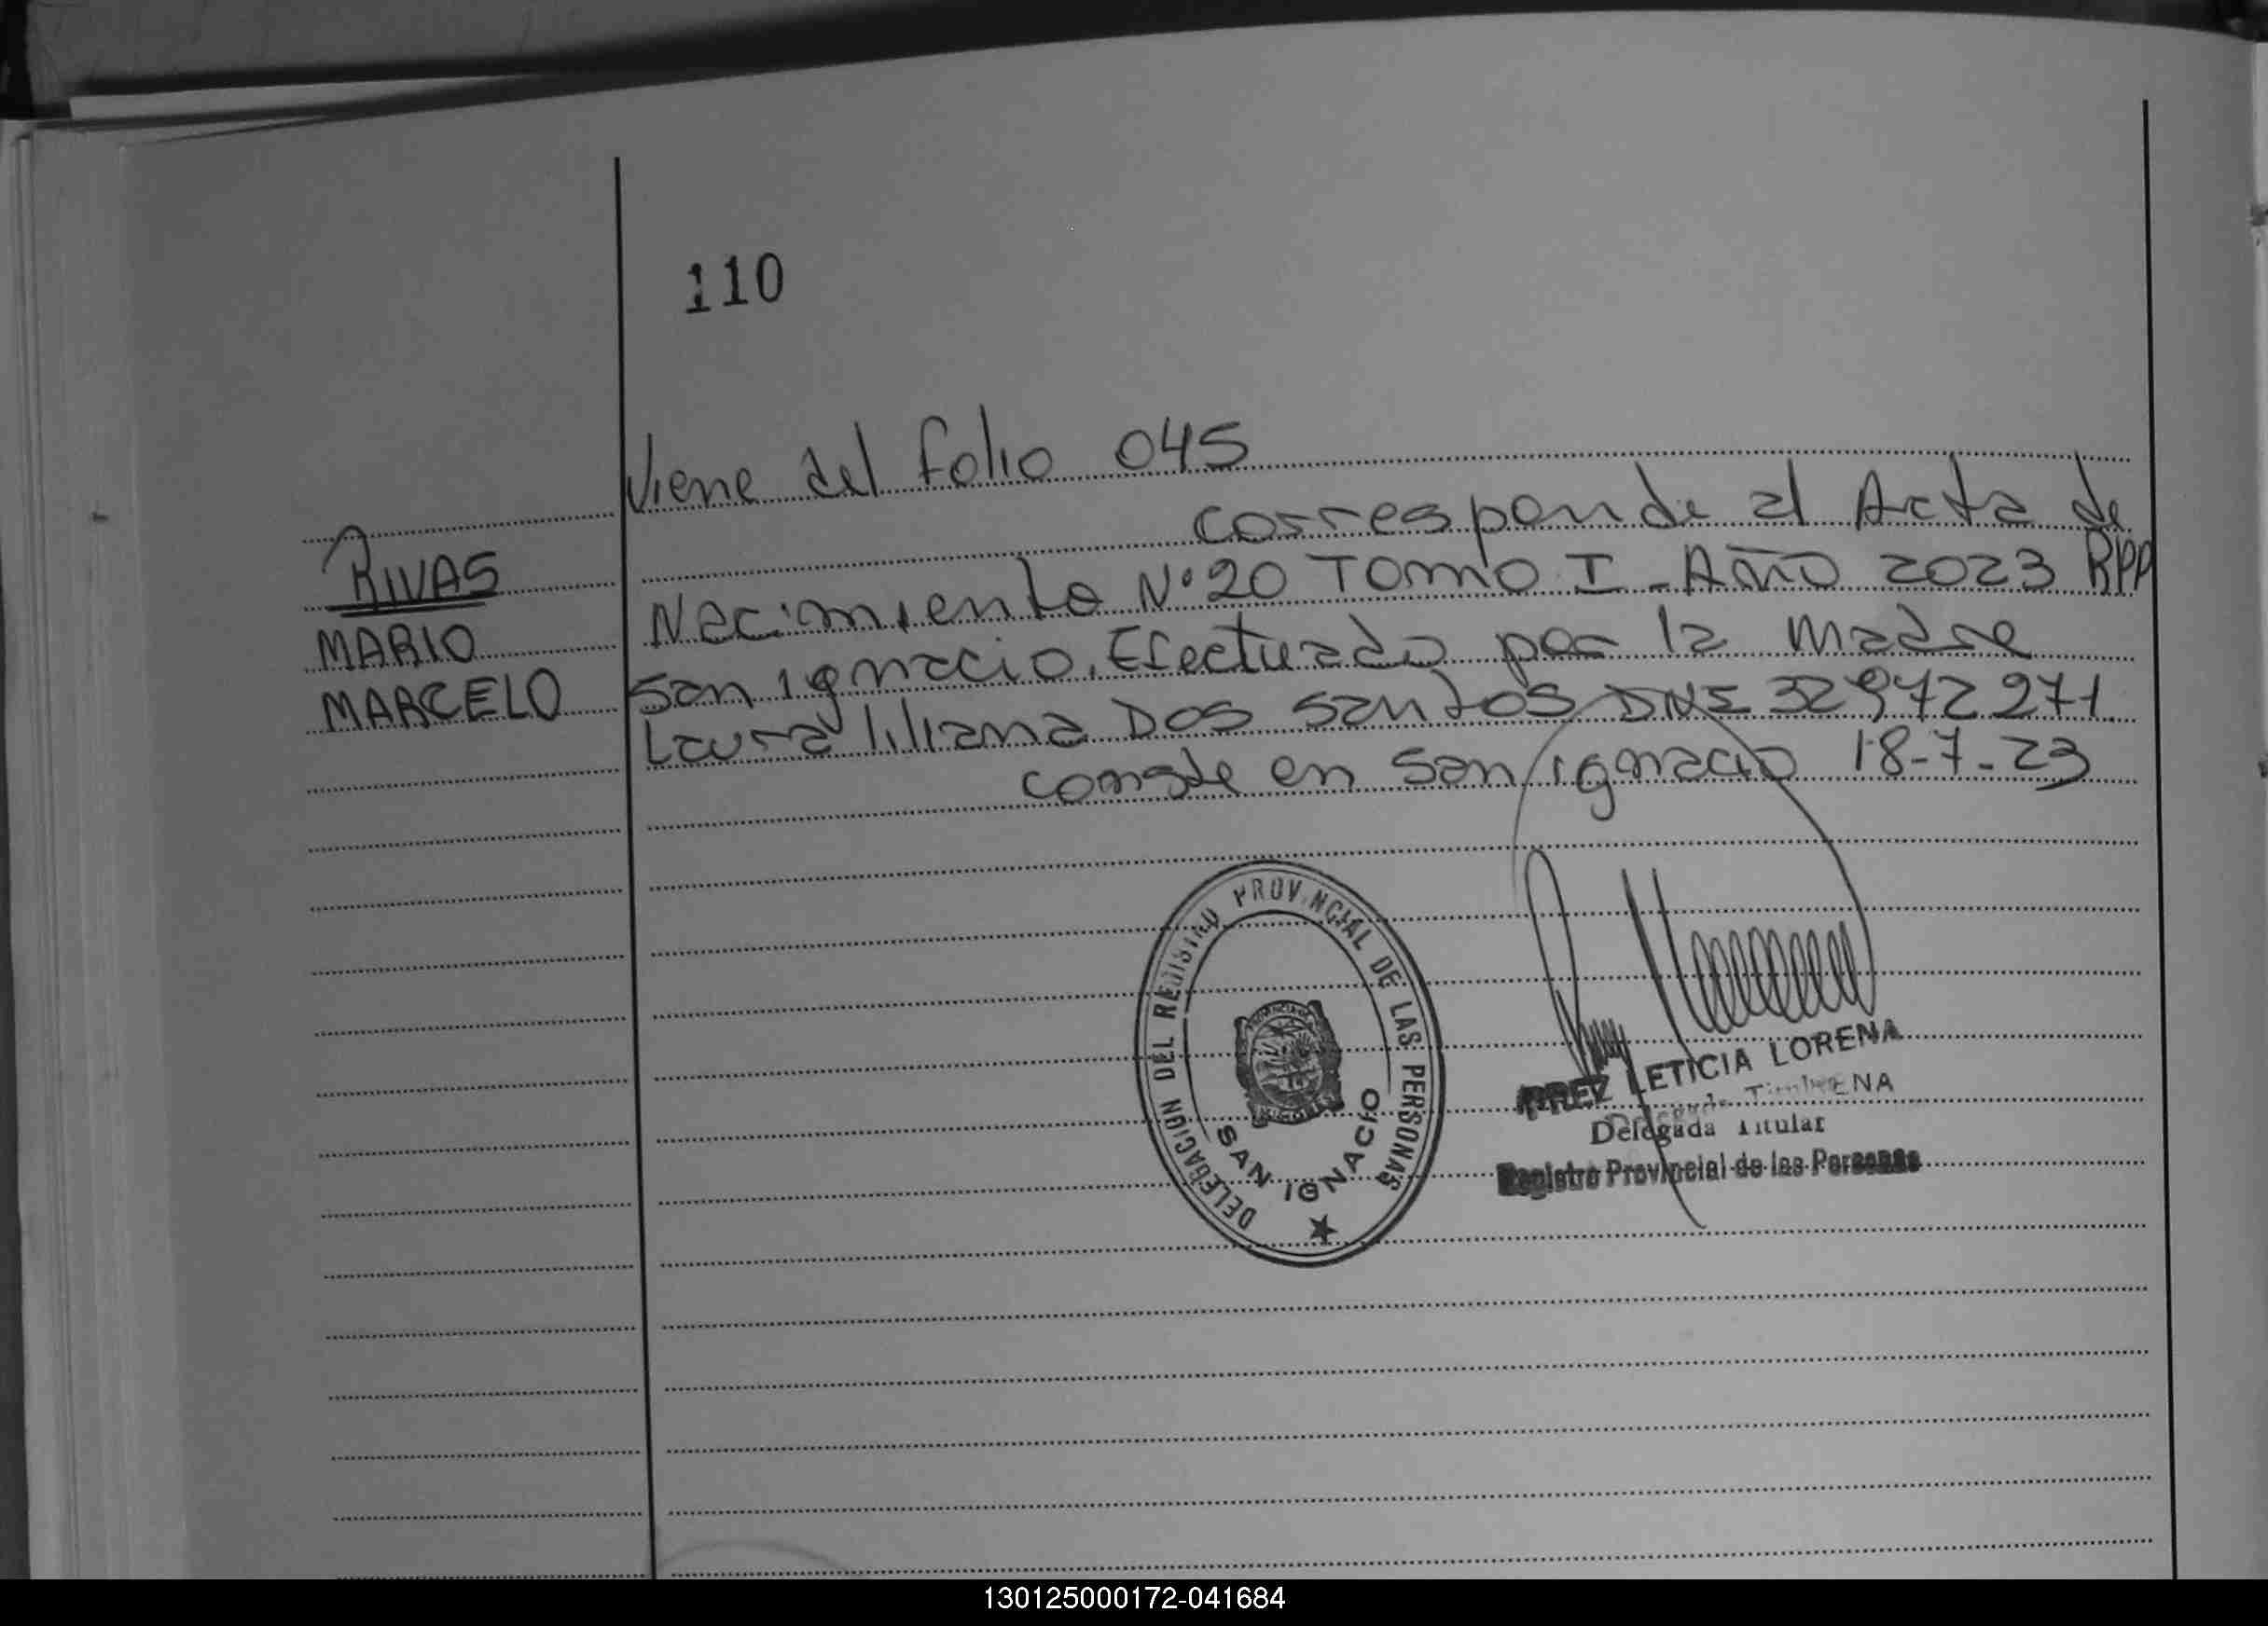 110
Viene del folio 045
corresponde al Acta de
RIVAS
Nacimiento N°20 Tomo I - AÑO 2023 RPP
MARIO
San ignacio. Efectuado por la madre
MARCELO
Laura liliana Dos santos DNI 32972271
conste en San ignacio 18-7-23
DELEGACION DEL REGISTRO PROVINCIAL DE LAS PERSONAS
SAN IGNACIO
LETICIA LORENA
Delegada Titular
Registro Provincial de las Personas
130125000172-041684